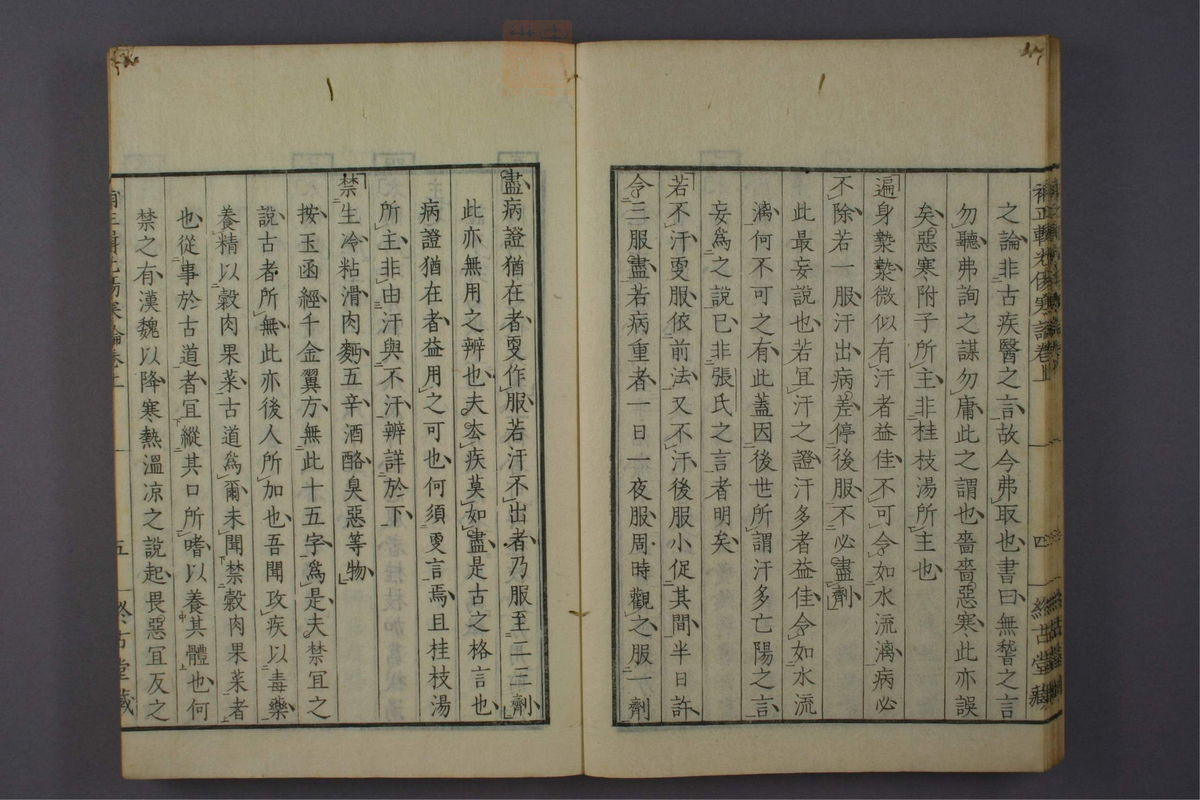 之論非古疾醫之言故今弗取也書曰無稽之言
勿聽弗詢之謀勿庸此之謂也嗇嗇惡寒此亦誤
矣惡寒附子所主非桂枝湯所主也
遍身漐漐微似有汗者益佳不可令如水流漓病必
不除若一服汗出病差停後服不必盡劑
此最妄說也若宜汗之證汗多者益佳令如水流
漓何不可之有此蓋因後世所謂汗多亡陽之言
妄爲之說已非張氏之言者明矣
若不汗更服依前法又不汗後服小促其間半日許
令三服盡若病重者一日一夜服周時觀之服一劑
四
盡病證猶在者更作服若汗不出者乃服至二三劑
此亦無用之辨也夫厺疾莫如盡是古之格言也
病證猶在者益用之可也何須更言焉且桂枝湯
所主非由汗與不汗辨詳於下
禁生冷粘滑肉麪五辛酒酪臭惡等物
按玉函經千金翼方無此十五字爲是夫禁宜之
說古者所無此亦後人所加也吾聞攻疾以毒藥
養精以穀肉果菜古道爲爾未聞禁穀肉果菜者
也從事於古道者宜縱其口所嗜以養其體也何
禁之有漢魏以降寒熱溫凉之說起畏惡宜反之
五